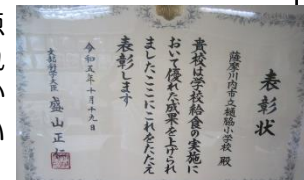 表彰状
薩摩川内市立樋脇小学校 殿
貴校は学校給食の実施に
おいて優れた成果を上げられ
ましたここにこれをたたえ
表彰します
令和五年十月十九日
文部科学大臣 盛山正仁